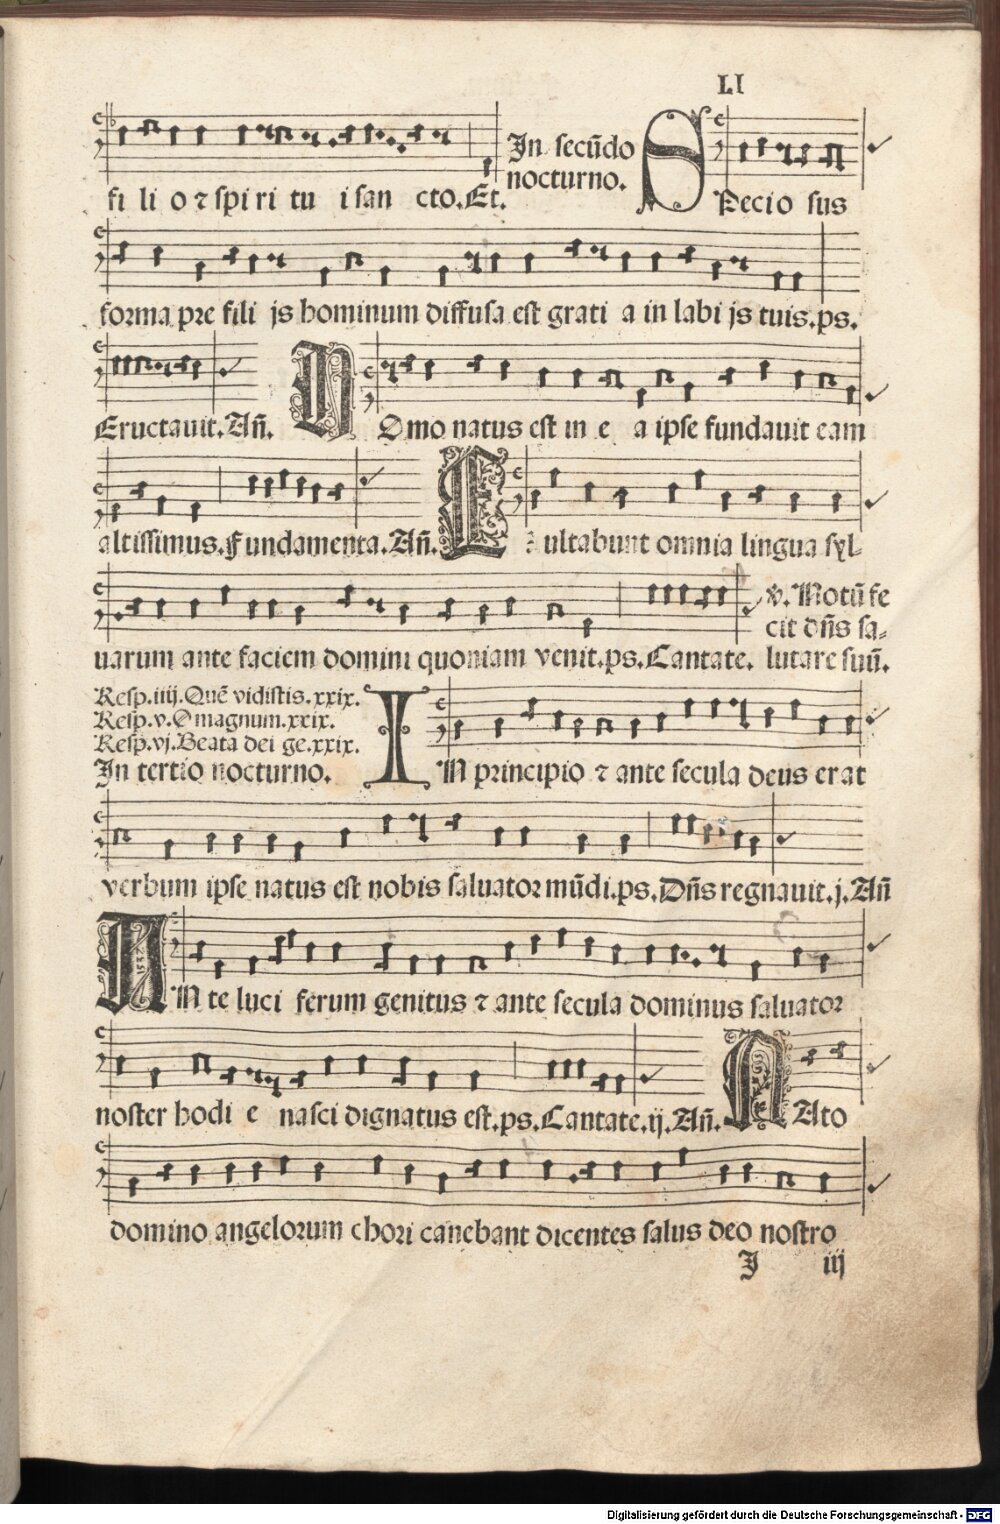 LI
fi li o ⁊ spi ri tu i san cto. Et. In secūdo nocturno. SPecio sus
forma pre fili js hominum diffusa est grati a in labi js tuis. ps.
Eructauit. Añ. DOmo natus est in e a ipse fundauit eam
altissimus. Fundamenta. Añ. EXultabunt omnia lingua syl-
uarum ante faciem domini quoniam venit. ps. Cantate. v. Notū fe
cit dñs sa-
lutare suū.
Resp. iiij. Quē vidistis. xxix.
Resp. v. O magnum. xxix.
Resp. vj. Beata dei ge. xxix.
In tertio nocturno. IN principio ⁊ ante secula deus erat
verbum ipse natus est nobis saluator mūdi. ps. Dñs regnauit. j. Añ
ANte luci ferum genitus ⁊ ante secula dominus saluator
noster hodi e nasci dignatus est. ps. Cantate. ij. Añ. NAto
domino angelorum chori canebant dicentes salus deo nostro
I iij
Digitalisierung gefördert durch die Deutsche Forschungsgemeinschaft - DFG